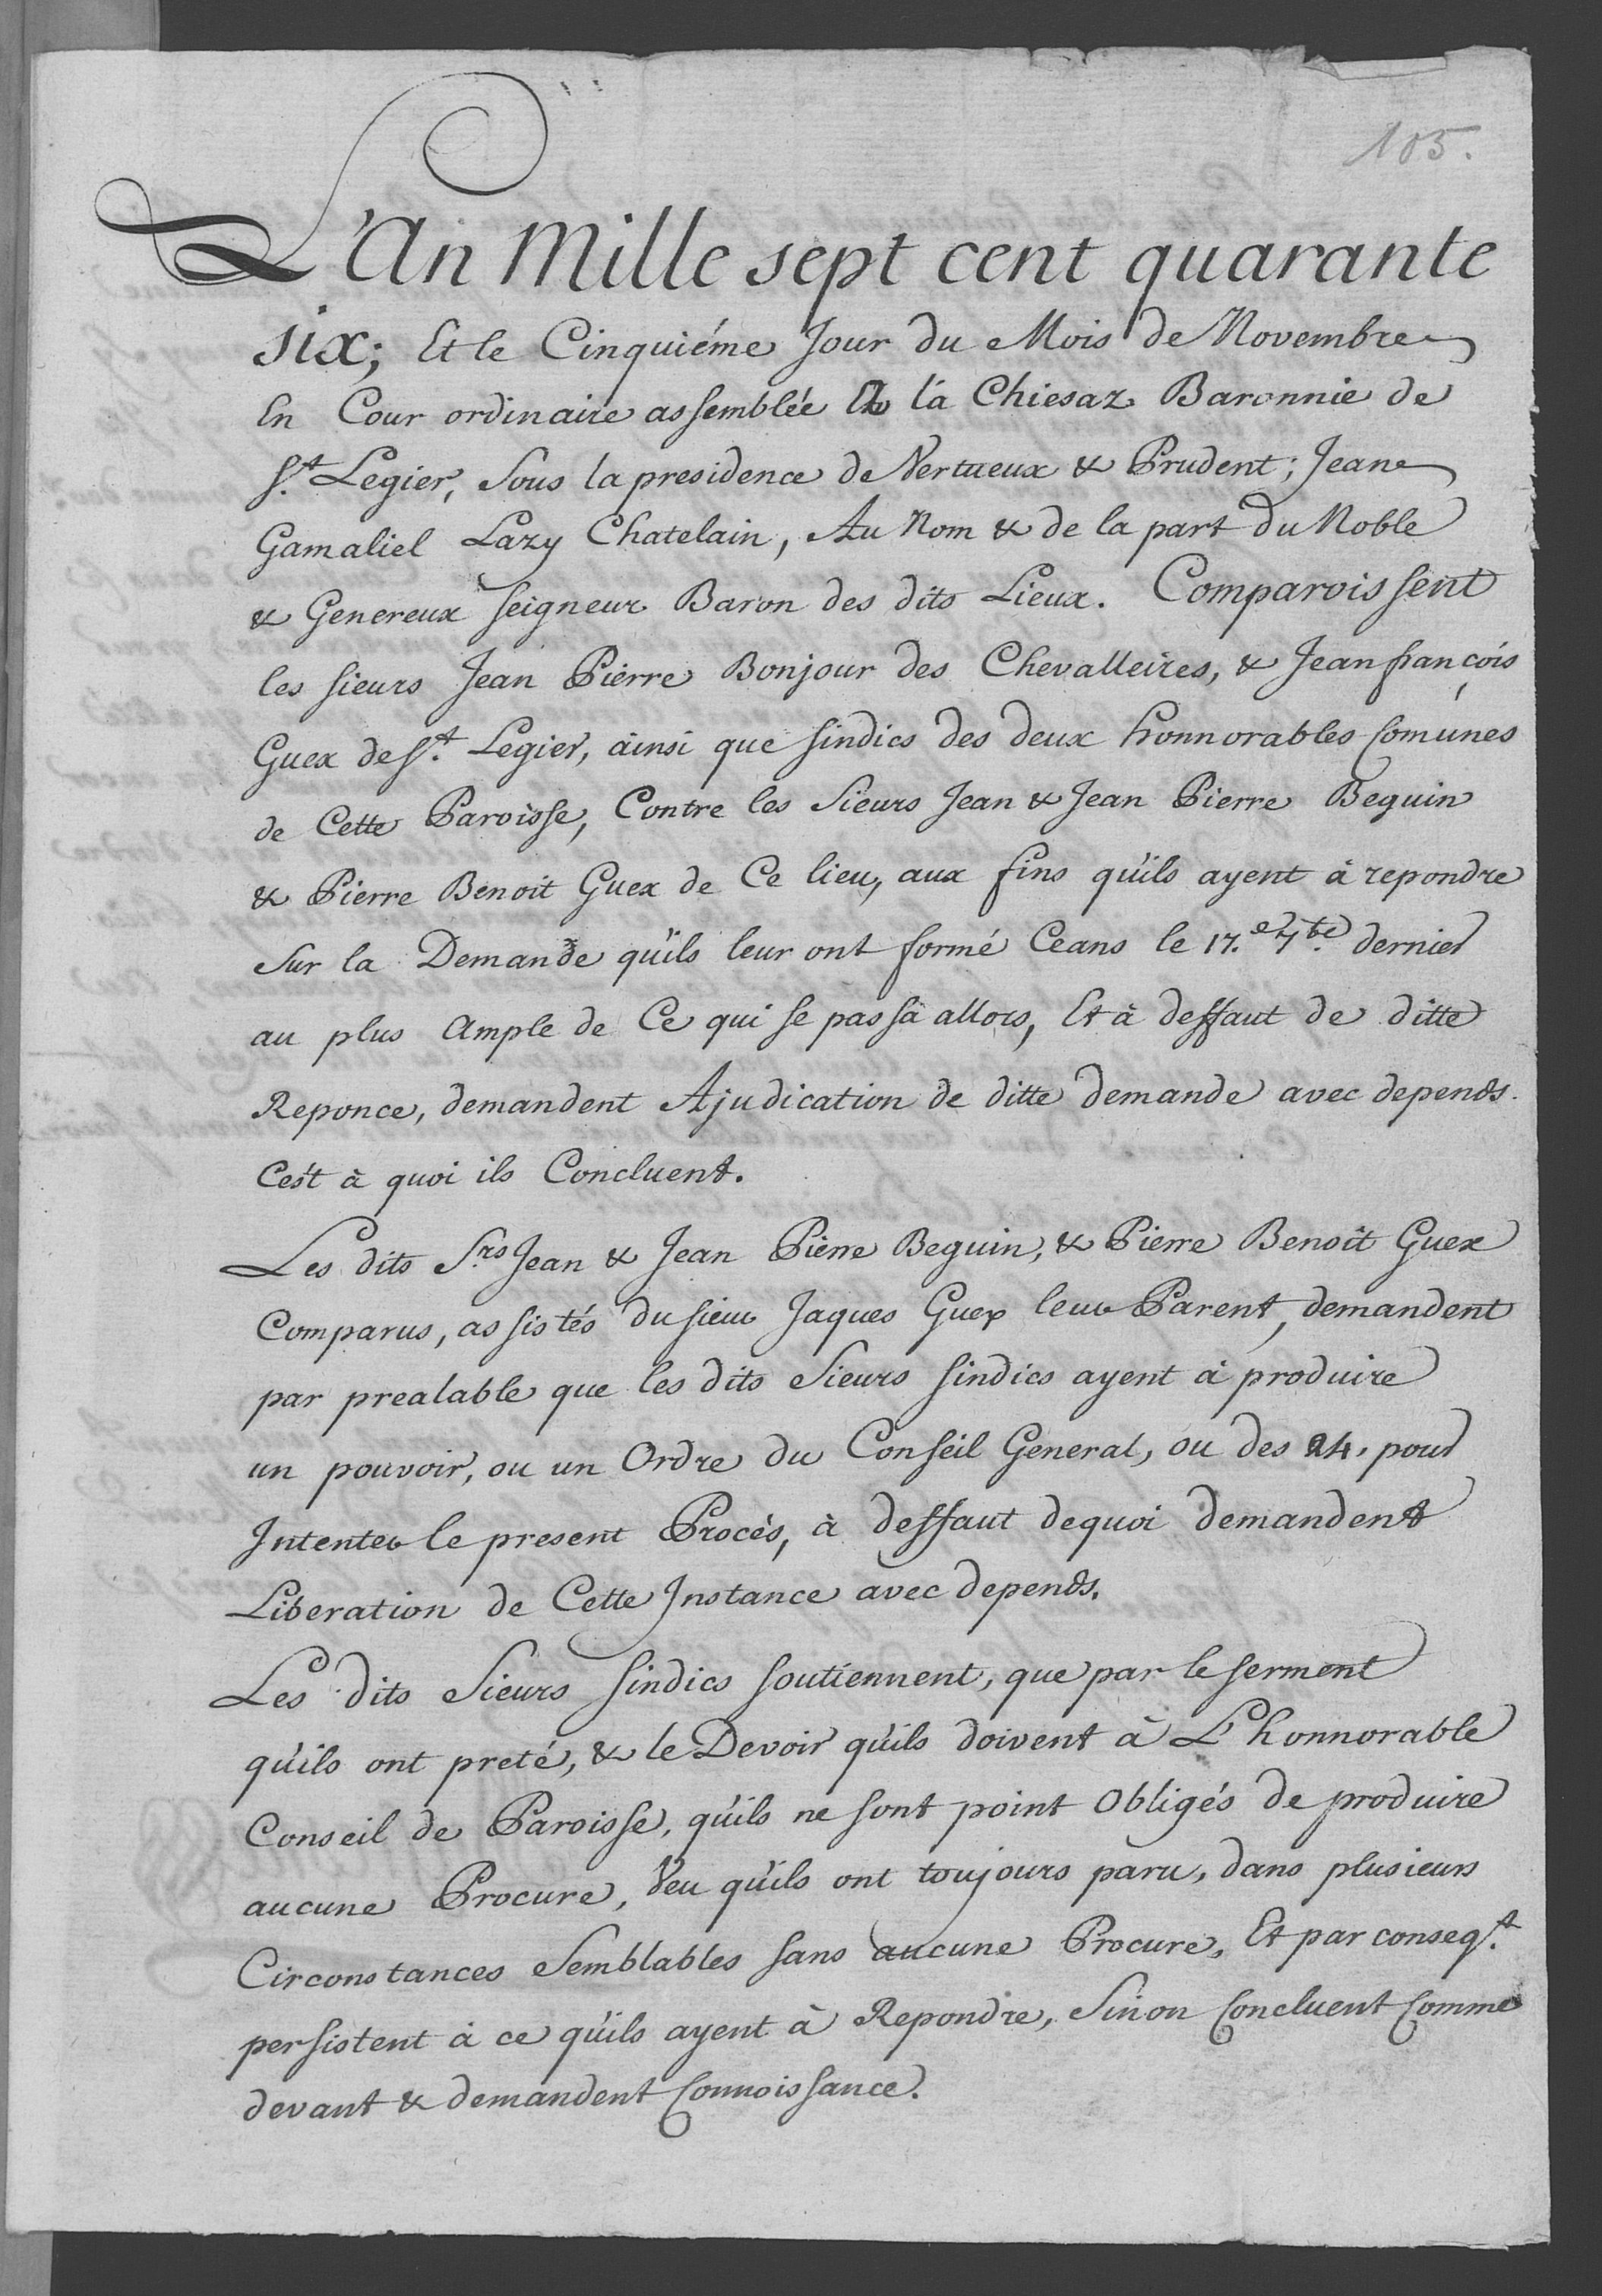 105.
L'An Mille sept cent quarante
six; Et le Cinquiéme Jour du Mois de Novembre
En Cour ordinaire assemblée de la Chiesaz Baronnie de
St. Legier, Sous la presidence de Vertueux & Prudent; Jean
Gamaliel Lazy Chatelain, Au Nom & de la part du Noble
& Genereux seigneur Baron des dits Lieux. Comparoissent
les sieurs Jean Pierre Bonjour des Chevalleires, & Jean françois
Guex de St. Legier, ainsi que sindics des deux honnorables Comunes
de Cette Paroisse, Contre les Sieurs Jean & Jean Pierre Beguin
& Pierre Benoit Guex de Ce lieu, aux fins qu'ils ayent à repondre
Sur la Demande qu'ils leur ont formé Ceans le 17.e 7bre. dernier
au plus Ample de Ce qui se passa allors, Et à deffaut de ditte
Reponce, demandent Ajudication de ditte demande avec depends.
C'est à quoi ils Concluent.
Les dits Srs. Jean & Jean Pierre Beguin, & Pierre Benoit Guex
Comparus, assistés du sieur Jaques Guex leur Parent, demandent
par prealable que les dits Sieurs sindics ayent à produire
un pouvoir, ou un Ordre du Conseil General, ou des 24. pour
Intenter le present Procès, à deffaut dequoi demandent
Liberation de Cette Instance avec depends.
Les dits Sieurs sindics soutiennent, que par le serment
qu'ils ont preté, & le Devoir qu'ils doivent à L'honnorable
Conseil de Paroisse, qu'ils ne sont point Obligés de produire
aucune Procure, Veu qu'ils ont toujours paru, dans plusieurs
Circonstances Semblables sans aucune Procure, Et par conseqt.
persistent à ce qu'ils ayent à Repondre, Sinon Concluent Comme
devant & demandent Connoissance.